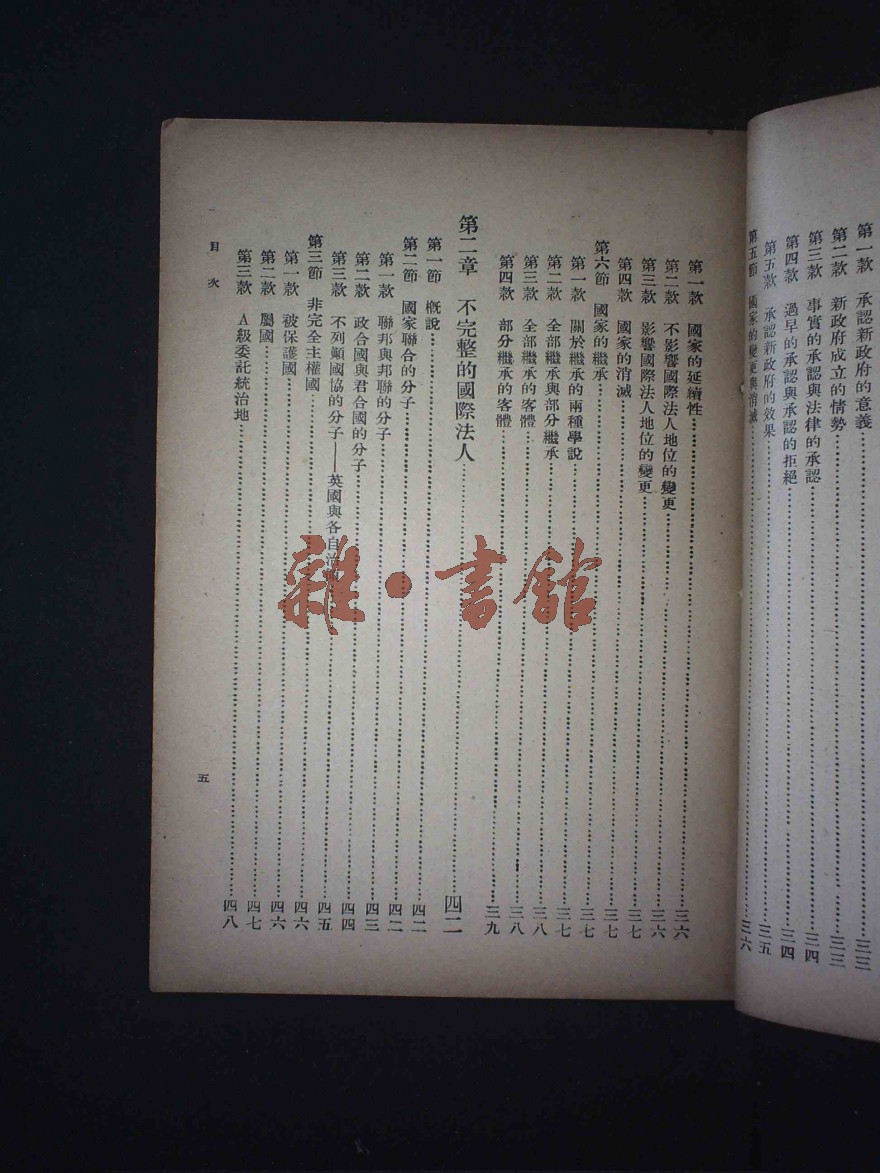 第一款　承認新政府的意義……三三
第二款　新政府成立的情勢……三三
第三款　事實的承認與法律的承認……三四
第四款　過早的承認與承認的拒絕……三四
第五款　承認新政府的效果……三五
第五節　國家的變更與消滅……三六
第一款　國家的延續性……三六
第二款　不影響國際法人地位的變更……三六
第三款　影響國際法人地位的變更……三七
第四款　國家的消滅……三七
第六節　國家的繼承……三七
第一款　關於繼承的兩種學說……三七
第二款　全部繼承與部分繼承……三八
第三款　全部繼承的客體……三八
第四款　部分繼承的客體……三九
第二章　不完整的國際法人……四二
第一節　概說……四二
第二節　國家聯合的分子……四二
第一款　聯邦與邦聯的分子……四三
第二款　政合國與君合國的分子……四四
第三款　不列顛國協的分子——英國與各自治……四五
第三節　非完全主權國……四六
第一款　被保護國……四六
第二款　屬國……四七
第三款　A級委託統治地……四八
目次
五
雜·書館